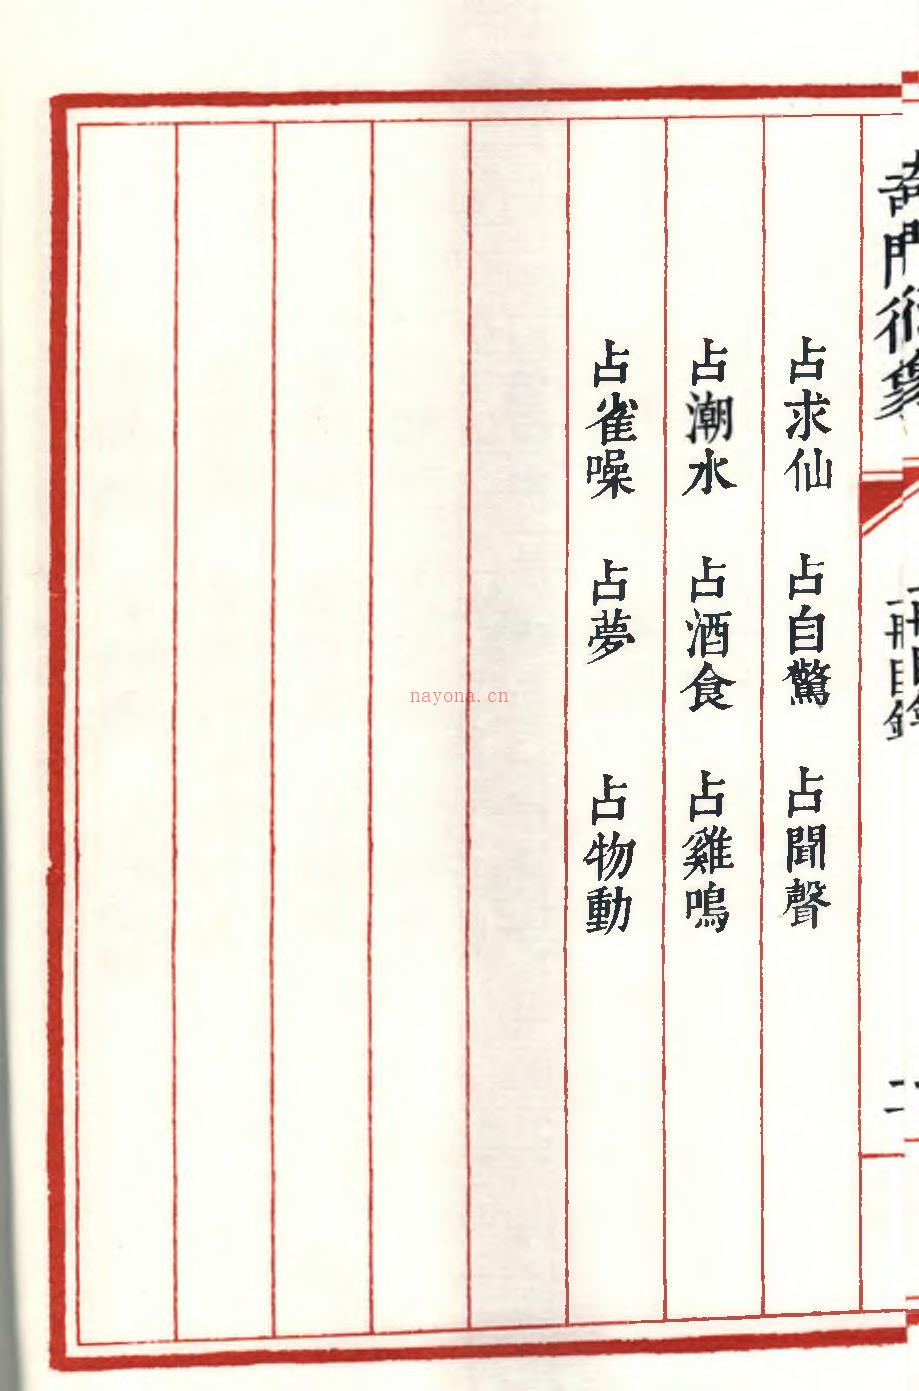 奇門衍象
一冊目錄
二
占求仙 占自驚 占聞聲
占潮水 占酒食 占雞鳴
占雀噪 占夢 占物動
nayona.cn